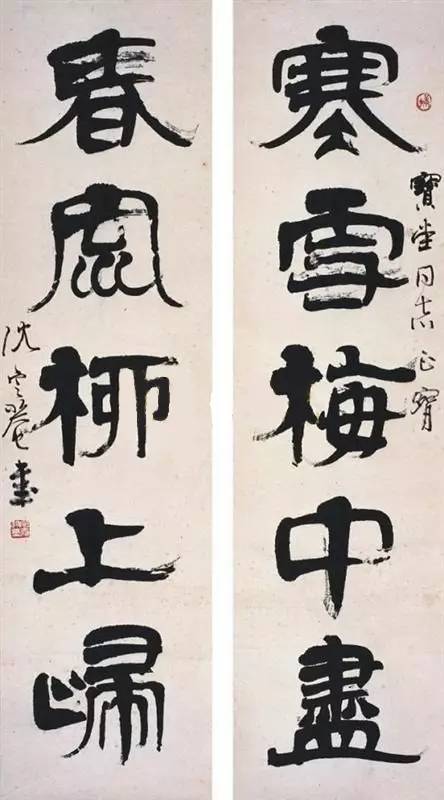 寒雪梅中盡
寶堂同志正
春風柳上歸
沈定庵書